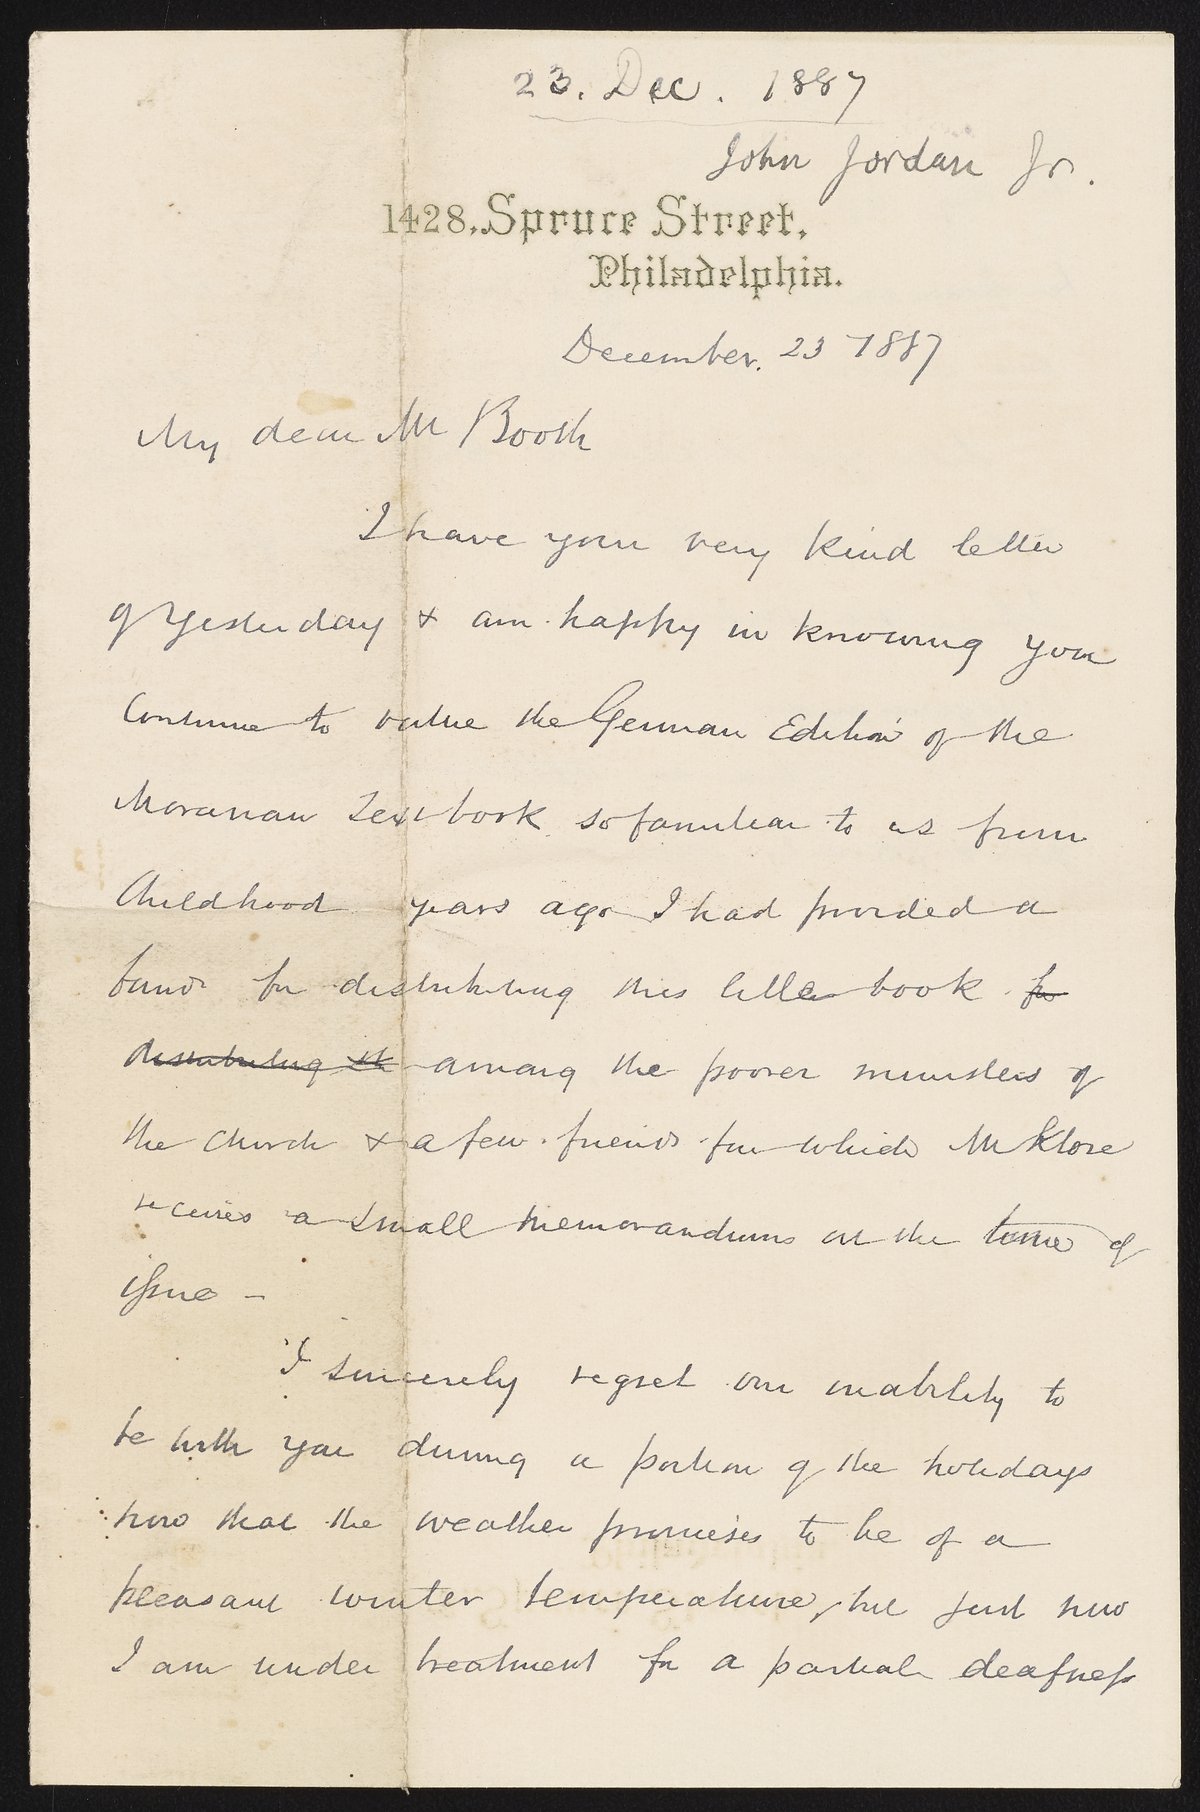 23. Dec. 1887
John Jordan Jr.
1428. Spruce Street,
Philadelphia.
December. 23 1887
My dear Mr Booth
I have your very kind letter
of Yesterday & am happy in knowing you
Continue to value the German Edition of the
Moravian Textbook so familiar to us from
Childhood years ago I had provided a
fund for distributing this little book for
distributing it among the poorer ministers of
the Church & a few friends for which Mr Klose
receives a small memorandums at the time of
issue –
I sincerely regret our inability to
be with you during a portion of the holidays
now that the weather promises to be of a
pleasant winter temperature, but just now
I am under treatment for a partial deafness